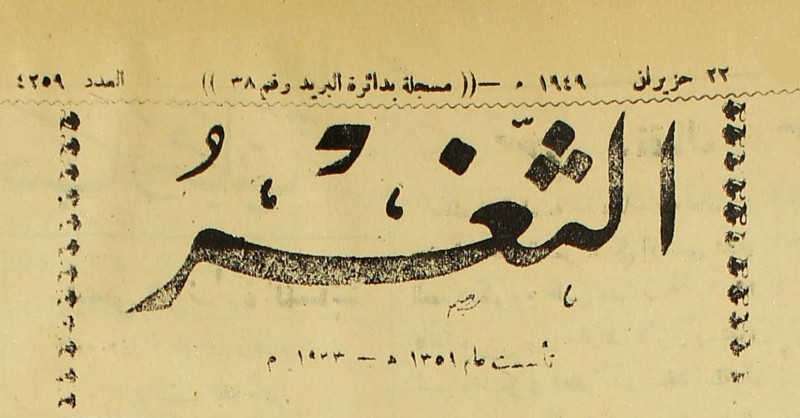 ٢٢ حزيران ١٩٤٩ م —(( مسجلة بدائرة البريد رقم ٣٨ )) العدد ٤٢٥٩
الثَّغْرُ
تأسست عام ١٣٥١ ه — ١٩٣٣ م